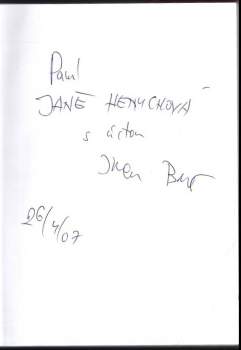 Paní
JANĚ HENYCHOVÁ
s úctou
Ivan
26/4/07